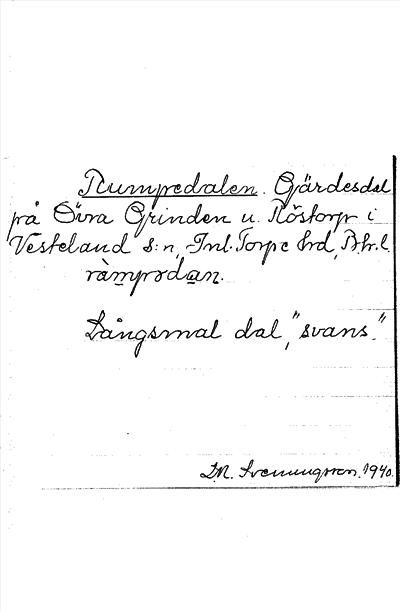 Rumpedalen. Gärdesdal
på Övra Grinden u. Röstorp i
Vesteland s:n, Inl. Torpe hd, Bh. l.
ràmpədan.
Långsmal dal, "svans."
D.N. Svenungsson. 1940.